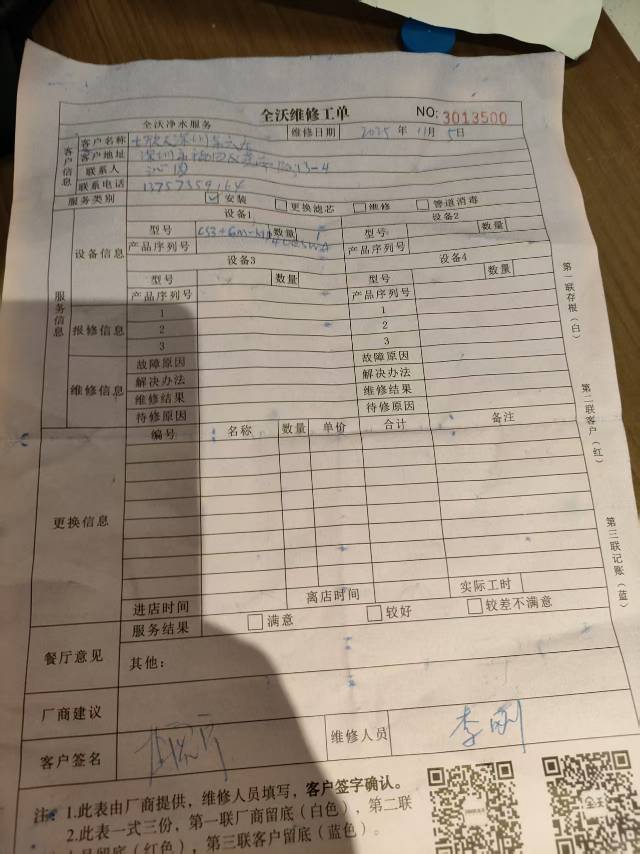 全沃维修工单 NO: 3013500
全沃净水服务 维修日期 2025 年 11 月 5 日
客户信息
客户名称
客户地址
联系人
联系电话
服务类别 安装 更换滤芯 维修 管道消毒
服务信息
设备信息 设备1 设备2
型号 数量 型号 数量
产品序列号 产品序列号
设备3 设备4
型号 数量 型号 数量
产品序列号 产品序列号
报修信息 1 1
2 2
3 3
维修信息 故障原因 故障原因
解决办法 解决办法
维修结果 维修结果
待修原因 待修原因
更换信息 编号 名称 数量 单价 合计 备注
进店时间 离店时间 实际工时
餐厅意见 服务结果 满意 较好 较差不满意
其他：
厂商建议
客户签名 维修人员 李刚
注：1.此表由厂商提供，维修人员填写，客户签字确认。
2.此表一式三份，第一联厂商留底（白色），第二联
留底（红色），第三联客户留底（蓝色）。
第一联存根（白）
第二联客户（红）
第三联记账（蓝）